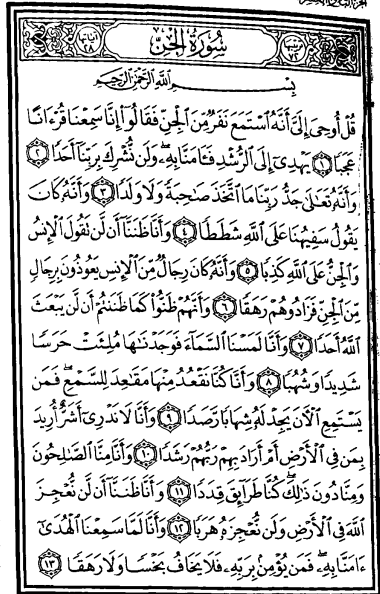 آياتها ٢٨ سُورَةُ الجِنِّ ترتيبها ٧٢
بِسْمِ ٱللَّهِ ٱلرَّحْمَٰنِ ٱلرَّحِيمِ
قُلْ أُوحِىَ إِلَىَّ أَنَّهُ ٱسْتَمَعَ نَفَرٌ مِّنَ ٱلْجِنِّ فَقَالُوٓا۟ إِنَّا سَمِعْنَا قُرْءَانًا
عَجَبًا ١ يَهْدِىٓ إِلَى ٱلرُّشْدِ فَـَٔامَنَّا بِهِۦ ۖ وَلَن نُّشْرِكَ بِرَبِّنَآ أَحَدًا ٢
وَأَنَّهُۥ تَعَٰلَىٰ جَدُّ رَبِّنَا مَا ٱتَّخَذَ صَٰحِبَةً وَلَا وَلَدًا ٣ وَأَنَّهُۥ كَانَ
يَقُولُ سَفِيهُنَا عَلَى ٱللَّهِ شَطَطًا ٤ وَأَنَّا ظَنَنَّآ أَن لَّن تَقُولَ ٱلْإِنسُ
وَٱلْجِنُّ عَلَى ٱللَّهِ كَذِبًا ٥ وَأَنَّهُۥ كَانَ رِجَالٌ مِّنَ ٱلْإِنسِ يَعُوذُونَ بِرِجَالٍ
مِّنَ ٱلْجِنِّ فَزَادُوهُمْ رَهَقًا ٦ وَأَنَّهُمْ ظَنُّوا۟ كَمَا ظَنَنتُمْ أَن لَّن يَبْعَثَ
ٱللَّهُ أَحَدًا ٧ وَأَنَّا لَمَسْنَا ٱلسَّمَآءَ فَوَجَدْنَٰهَا مُلِئَتْ حَرَسًا
شَدِيدًا وَشُهُبًا ٨ وَأَنَّا كُنَّا نَقْعُدُ مِنْهَا مَقَٰعِدَ لِلسَّمْعِ ۖ فَمَن
يَسْتَمِعِ ٱلْـَٔانَ يَجِدْ لَهُۥ شِهَابًا رَّصَدًا ٩ وَأَنَّا لَا نَدْرِىٓ أَشَرٌّ أُرِيدَ
بِمَن فِى ٱلْأَرْضِ أَمْ أَرَادَ بِهِمْ رَبُّهُمْ رَشَدًا ١٠ وَأَنَّا مِنَّا ٱلصَّٰلِحُونَ
وَمِنَّا دُونَ ذَٰلِكَ ۖ كُنَّا طَرَآئِقَ قِدَدًا ١١ وَأَنَّا ظَنَنَّآ أَن لَّن نُّعْجِزَ
ٱللَّهَ فِى ٱلْأَرْضِ وَلَن نُّعْجِزَهُۥ هَرَبًا ١٢ وَأَنَّا لَمَّا سَمِعْنَا ٱلْهُدَىٰٓ
ءَامَنَّا بِهِۦ ۖ فَمَن يُؤْمِنۢ بِرَبِّهِۦ فَلَا يَخَافُ بَخْسًا وَلَا رَهَقًا ١٣